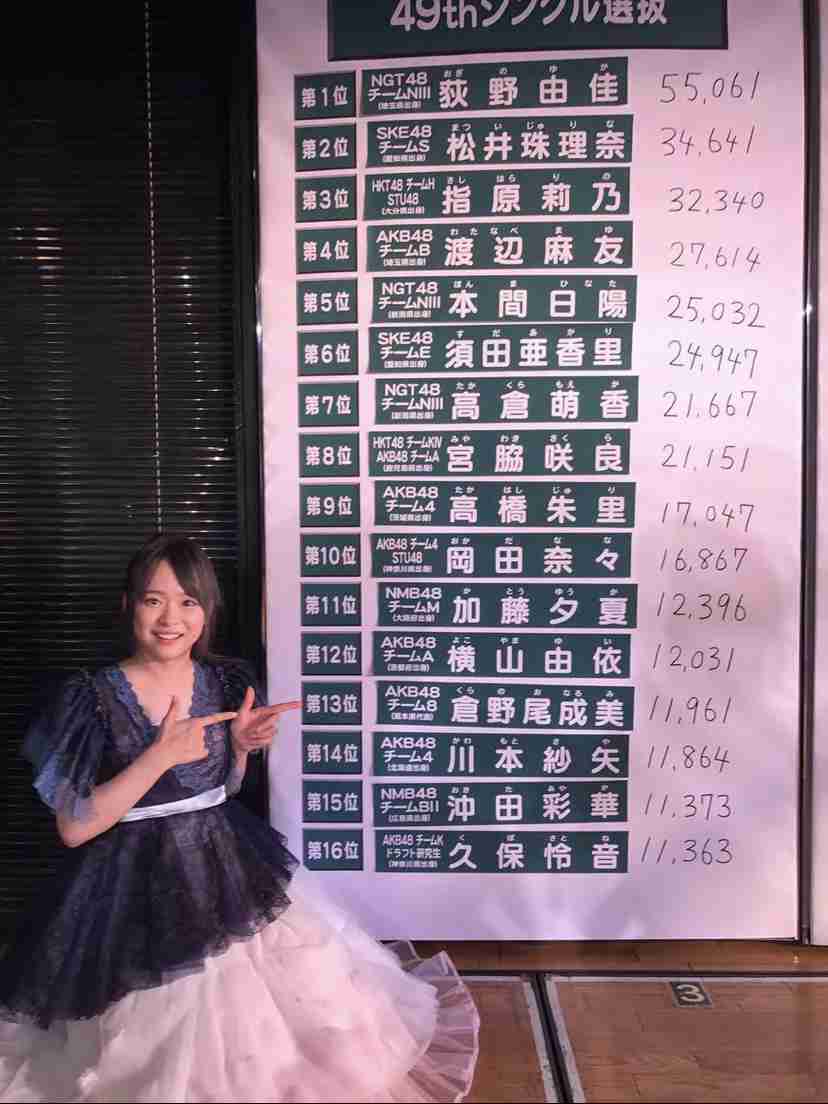 49thシングル選抜
第1位 NGT48 チームNIII (埼玉県出身) 荻野由佳 おぎのゆか 55,061
第2位 SKE48 チームS (愛知県出身) 松井珠理奈 まついじゅりな 34,641
第3位 HKT48 チームH STU48 (大分県出身) 指原莉乃 さしはらりの 32,340
第4位 AKB48 チームB (埼玉県出身) 渡辺麻友 わたなべまゆ 27,614
第5位 NGT48 チームNIII (新潟県出身) 本間日陽 ほんまひなた 25,032
第6位 SKE48 チームE (愛知県出身) 須田亜香里 すだあかり 24,947
第7位 NGT48 チームNIII (新潟県出身) 高倉萌香 たかくらもえか 21,667
第8位 HKT48 チームKIV AKB48 チームA (鹿児島県出身) 宮脇咲良 みやわきさくら 21,151
第9位 AKB48 チーム4 (茨城県出身) 高橋朱里 たかはしじゅり 17,047
第10位 AKB48 チーム4 STU48 (神奈川県出身) 岡田奈々 おかだなな 16,867
第11位 NMB48 チームM (大阪府出身) 加藤夕夏 かとうゆうか 12,396
第12位 AKB48 チームA (京都府出身) 横山由依 よこやまゆい 12,031
第13位 AKB48 チーム8 (熊本県代表) 倉野尾成美 くらのおなるみ 11,961
第14位 AKB48 チーム4 (北海道出身) 川本紗矢 かわもとさや 11,864
第15位 NMB48 チームBII (広島県出身) 沖田彩華 おきたあやか 11,373
第16位 AKB48 チームK ドラフト研究生 (神奈川県出身) 久保怜音 くぼさとね 11,363
3